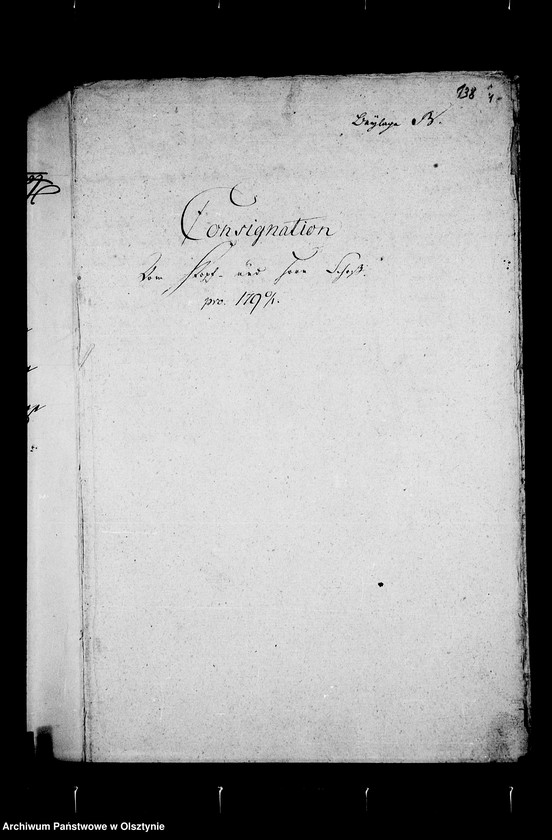 138
Beÿlage B.
Consignation
Vom Kopf- und Horn Schoß.
pro. 179 0/1.
Archiwum Państwowe w Olsztynie